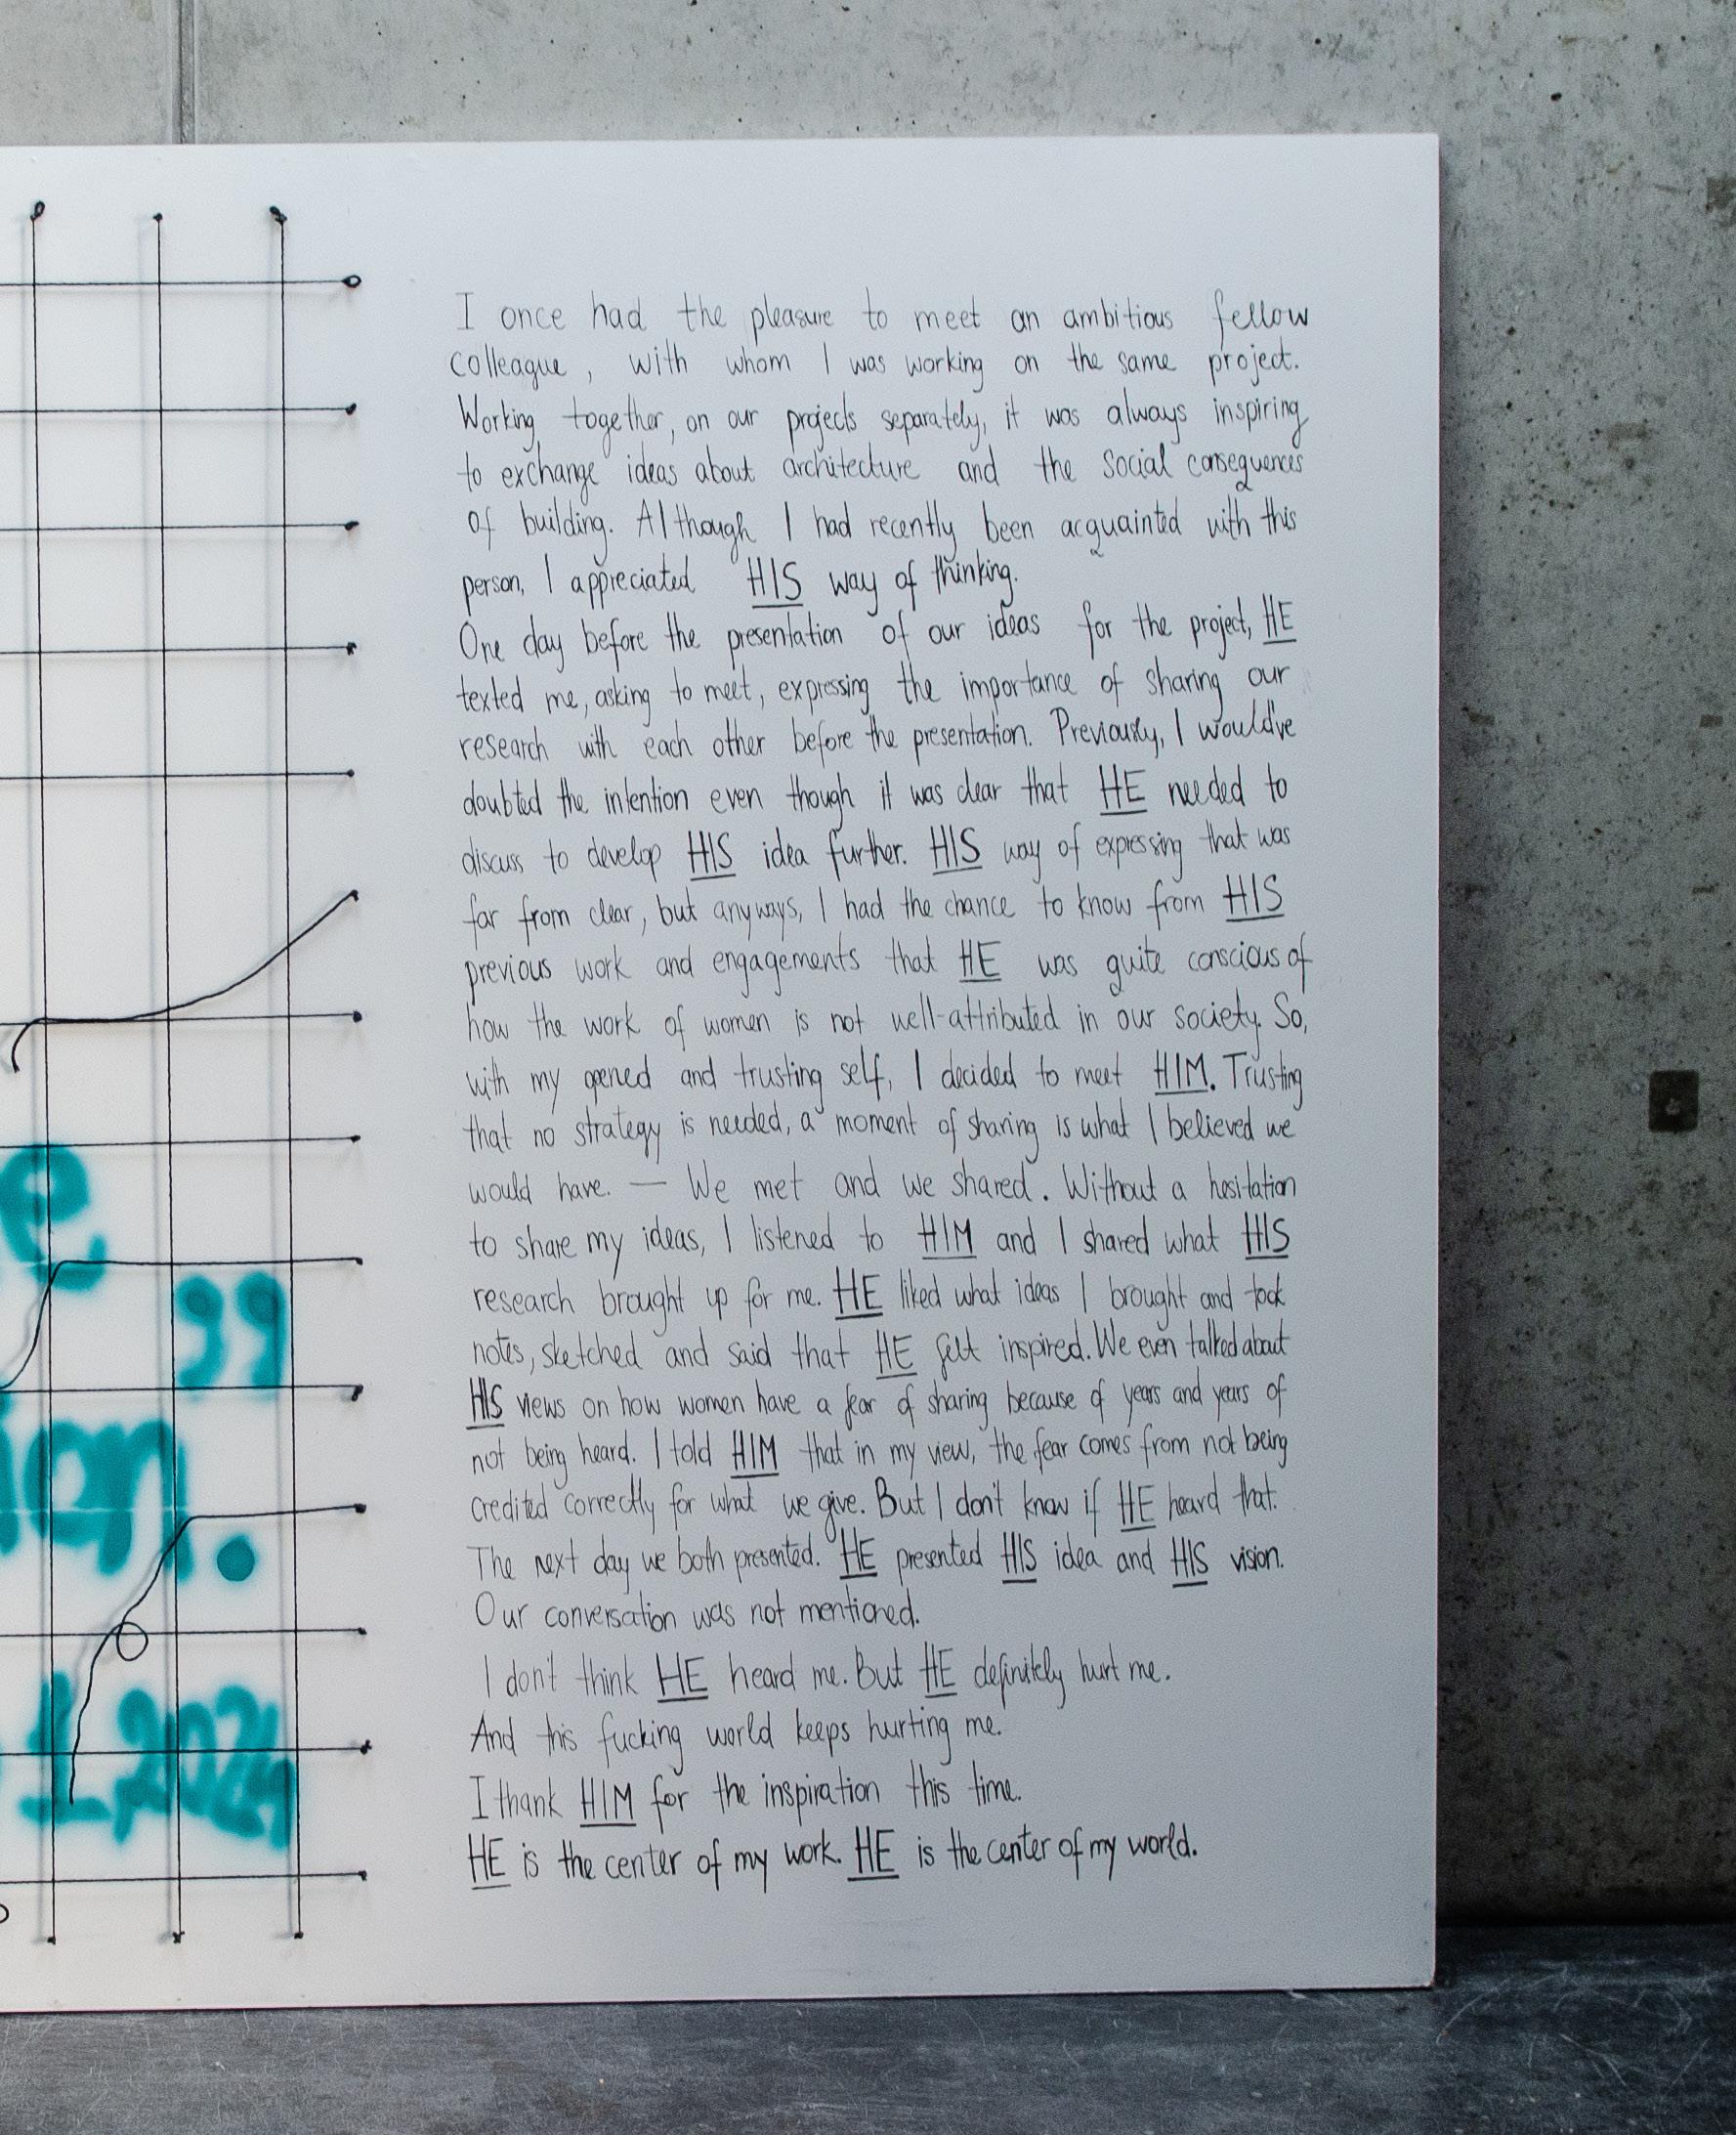 I once had the pleasure to meet an ambitious fellow
colleague, with whom I was working on the same project.
Working together, on our projects separately, it was always inspiring
to exchange ideas about architecture and the social consequences
of building. Although I had recently been acquainted with this
person, I appreciated HIS way of thinking.
One day before the presentation of our ideas for the project, HE
texted me, asking to meet, expressing the importance of sharing our
research with each other before the presentation. Previously, I would've
doubted the intention even though it was clear that HE needed to
discuss to develop HIS idea further. HIS way of expressing that was
far from clear, but anyways, I had the chance to know from HIS
previous work and engagements that HE was quite conscious of
how the work of women is not well-attributed in our society. So,
with my opened and trusting self, I decided to meet HIM. Trusting
that no strategy is needed, a moment of sharing is what I believed we
would have. — We met and we shared. Without a hesitation
to share my ideas, I listened to HIM and I shared what HIS
research brought up for me. HE liked what ideas I brought and took
notes, sketched and said that HE felt inspired. We even talked about
HIS views on how women have a fear of sharing because of years and years of
not being heard. I told HIM that in my view, the fear comes from not being
credited correctly for what we give. But I don't know if HE heard that.
The next day we both presented. HE presented HIS idea and HIS vision.
Our conversation was not mentioned.
I don't think HE heard me. But HE definitely hurt me.
And this fucking world keeps hurting me.
I thank HIM for the inspiration this time.
HE is the center of my work. HE is the center of my world.
e
"
ion.
1,2024